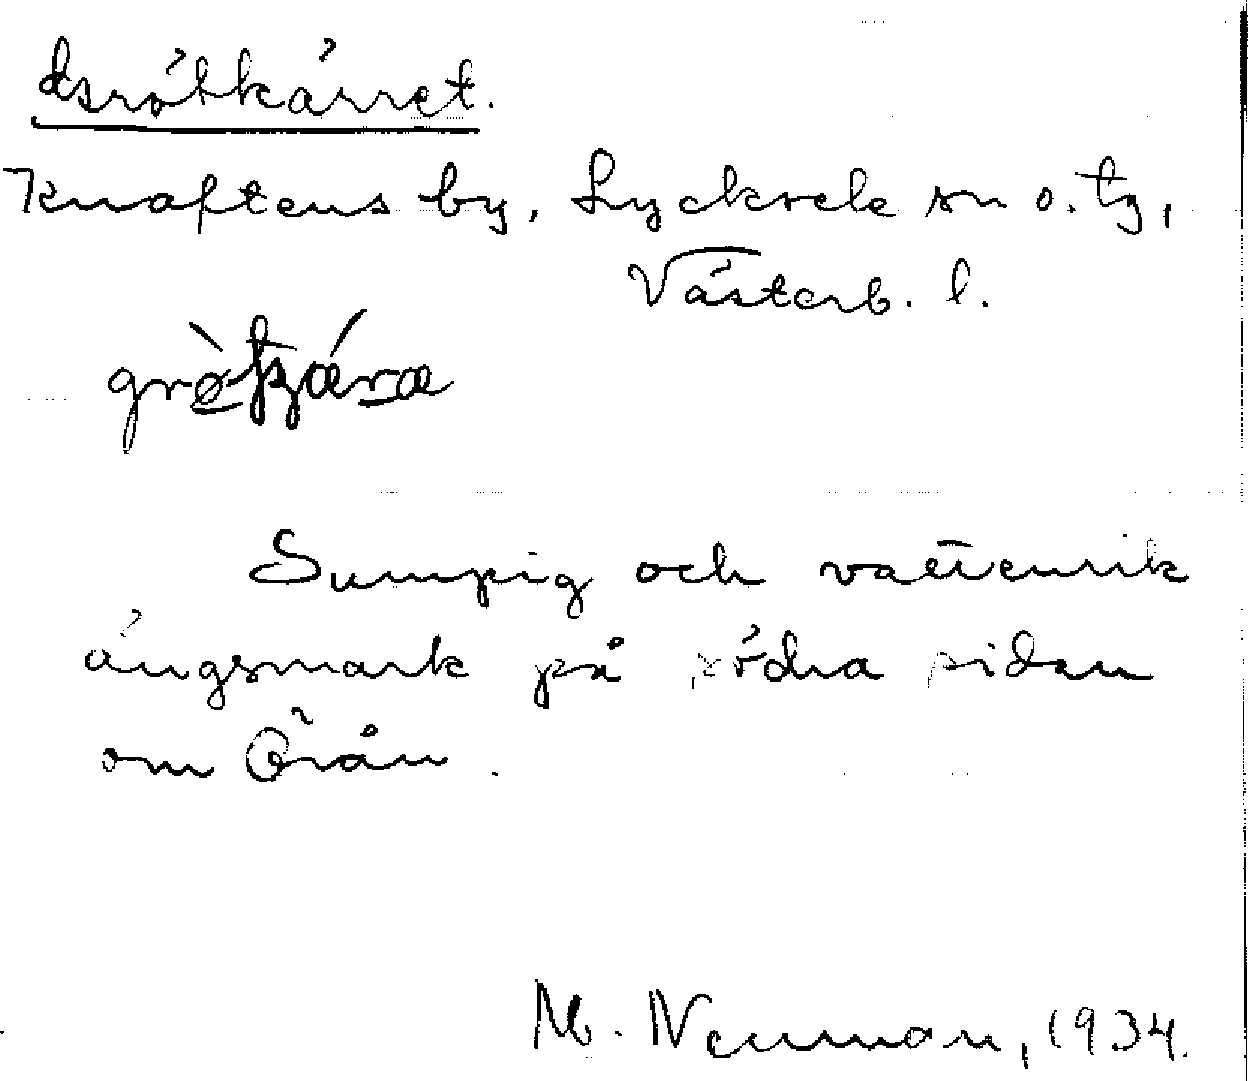 Grötkärret.
Knaftens by, Lycksele sn o. tg,
Västerb. l.
Sumpig och vattenrik
ängsmark på södra sidan
om Örån.
M. Neuman, 1934.